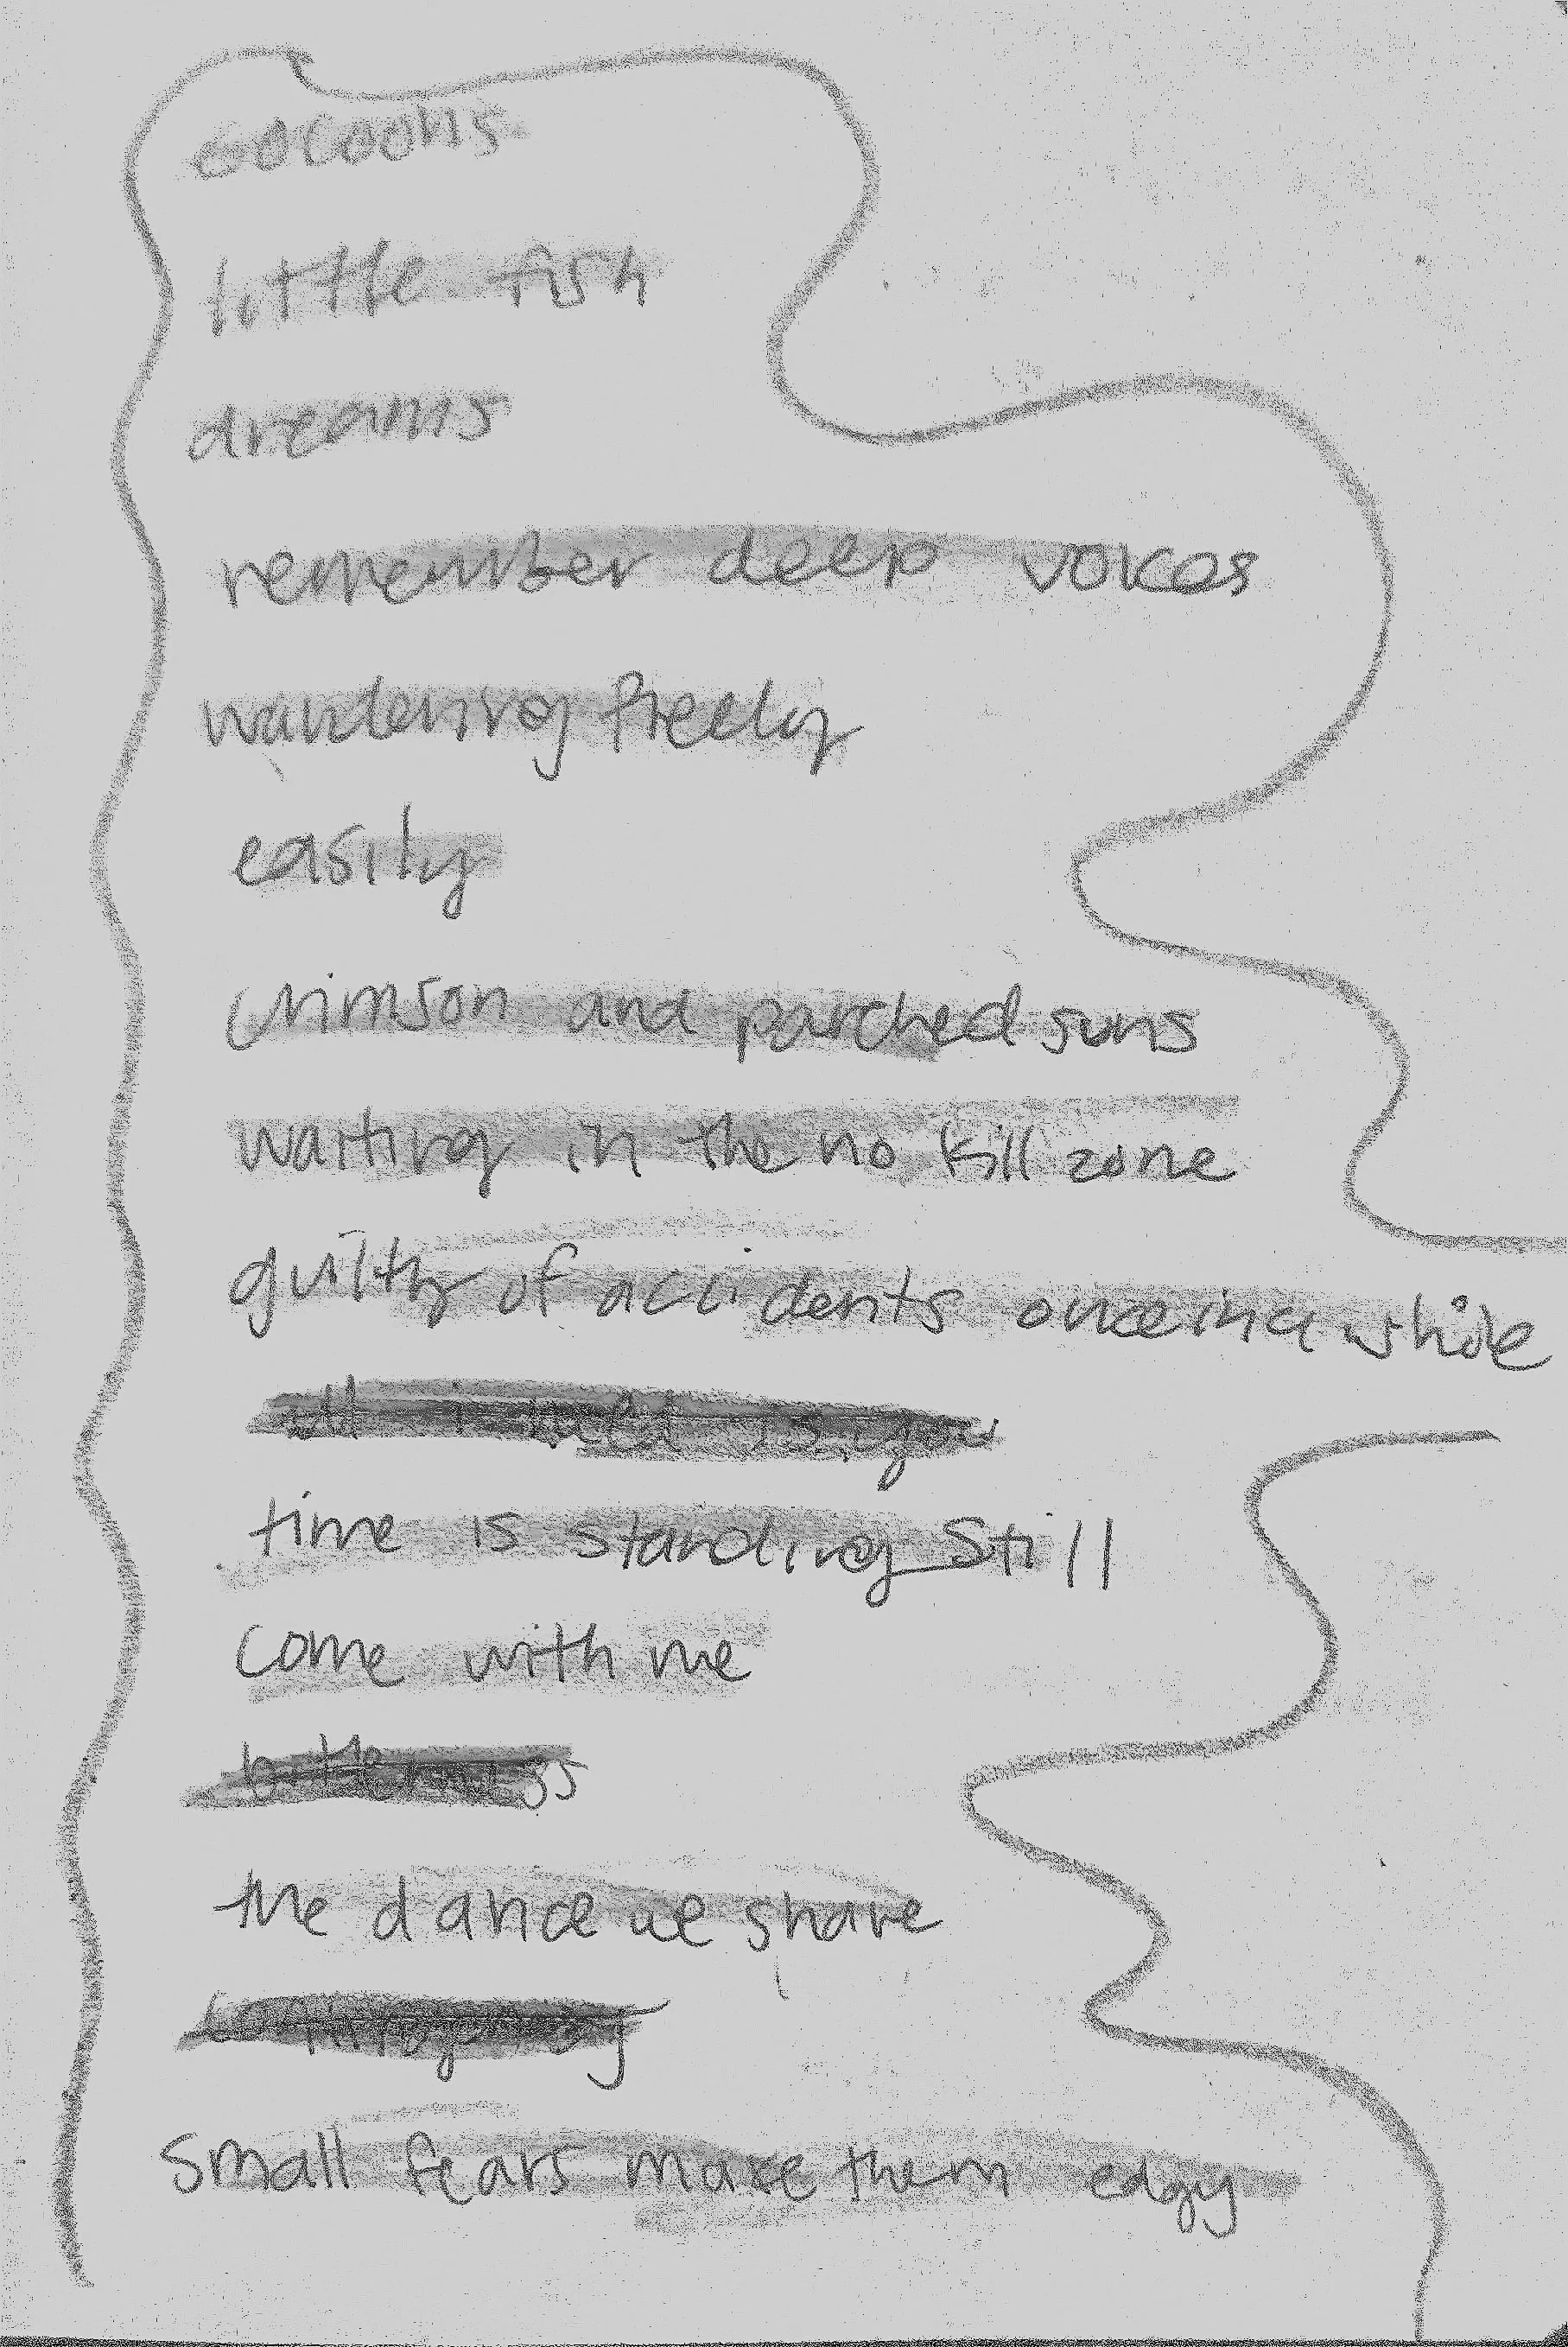 cocoons
little fish
dreams
remember deep voices
wandering freely
easily
crimson and parched suns
waiting in the no kill zone
guilty of accidents once in a while
all i need is you
time is standing still
come with me
bitterness
the dance we share
small fears make them edgy